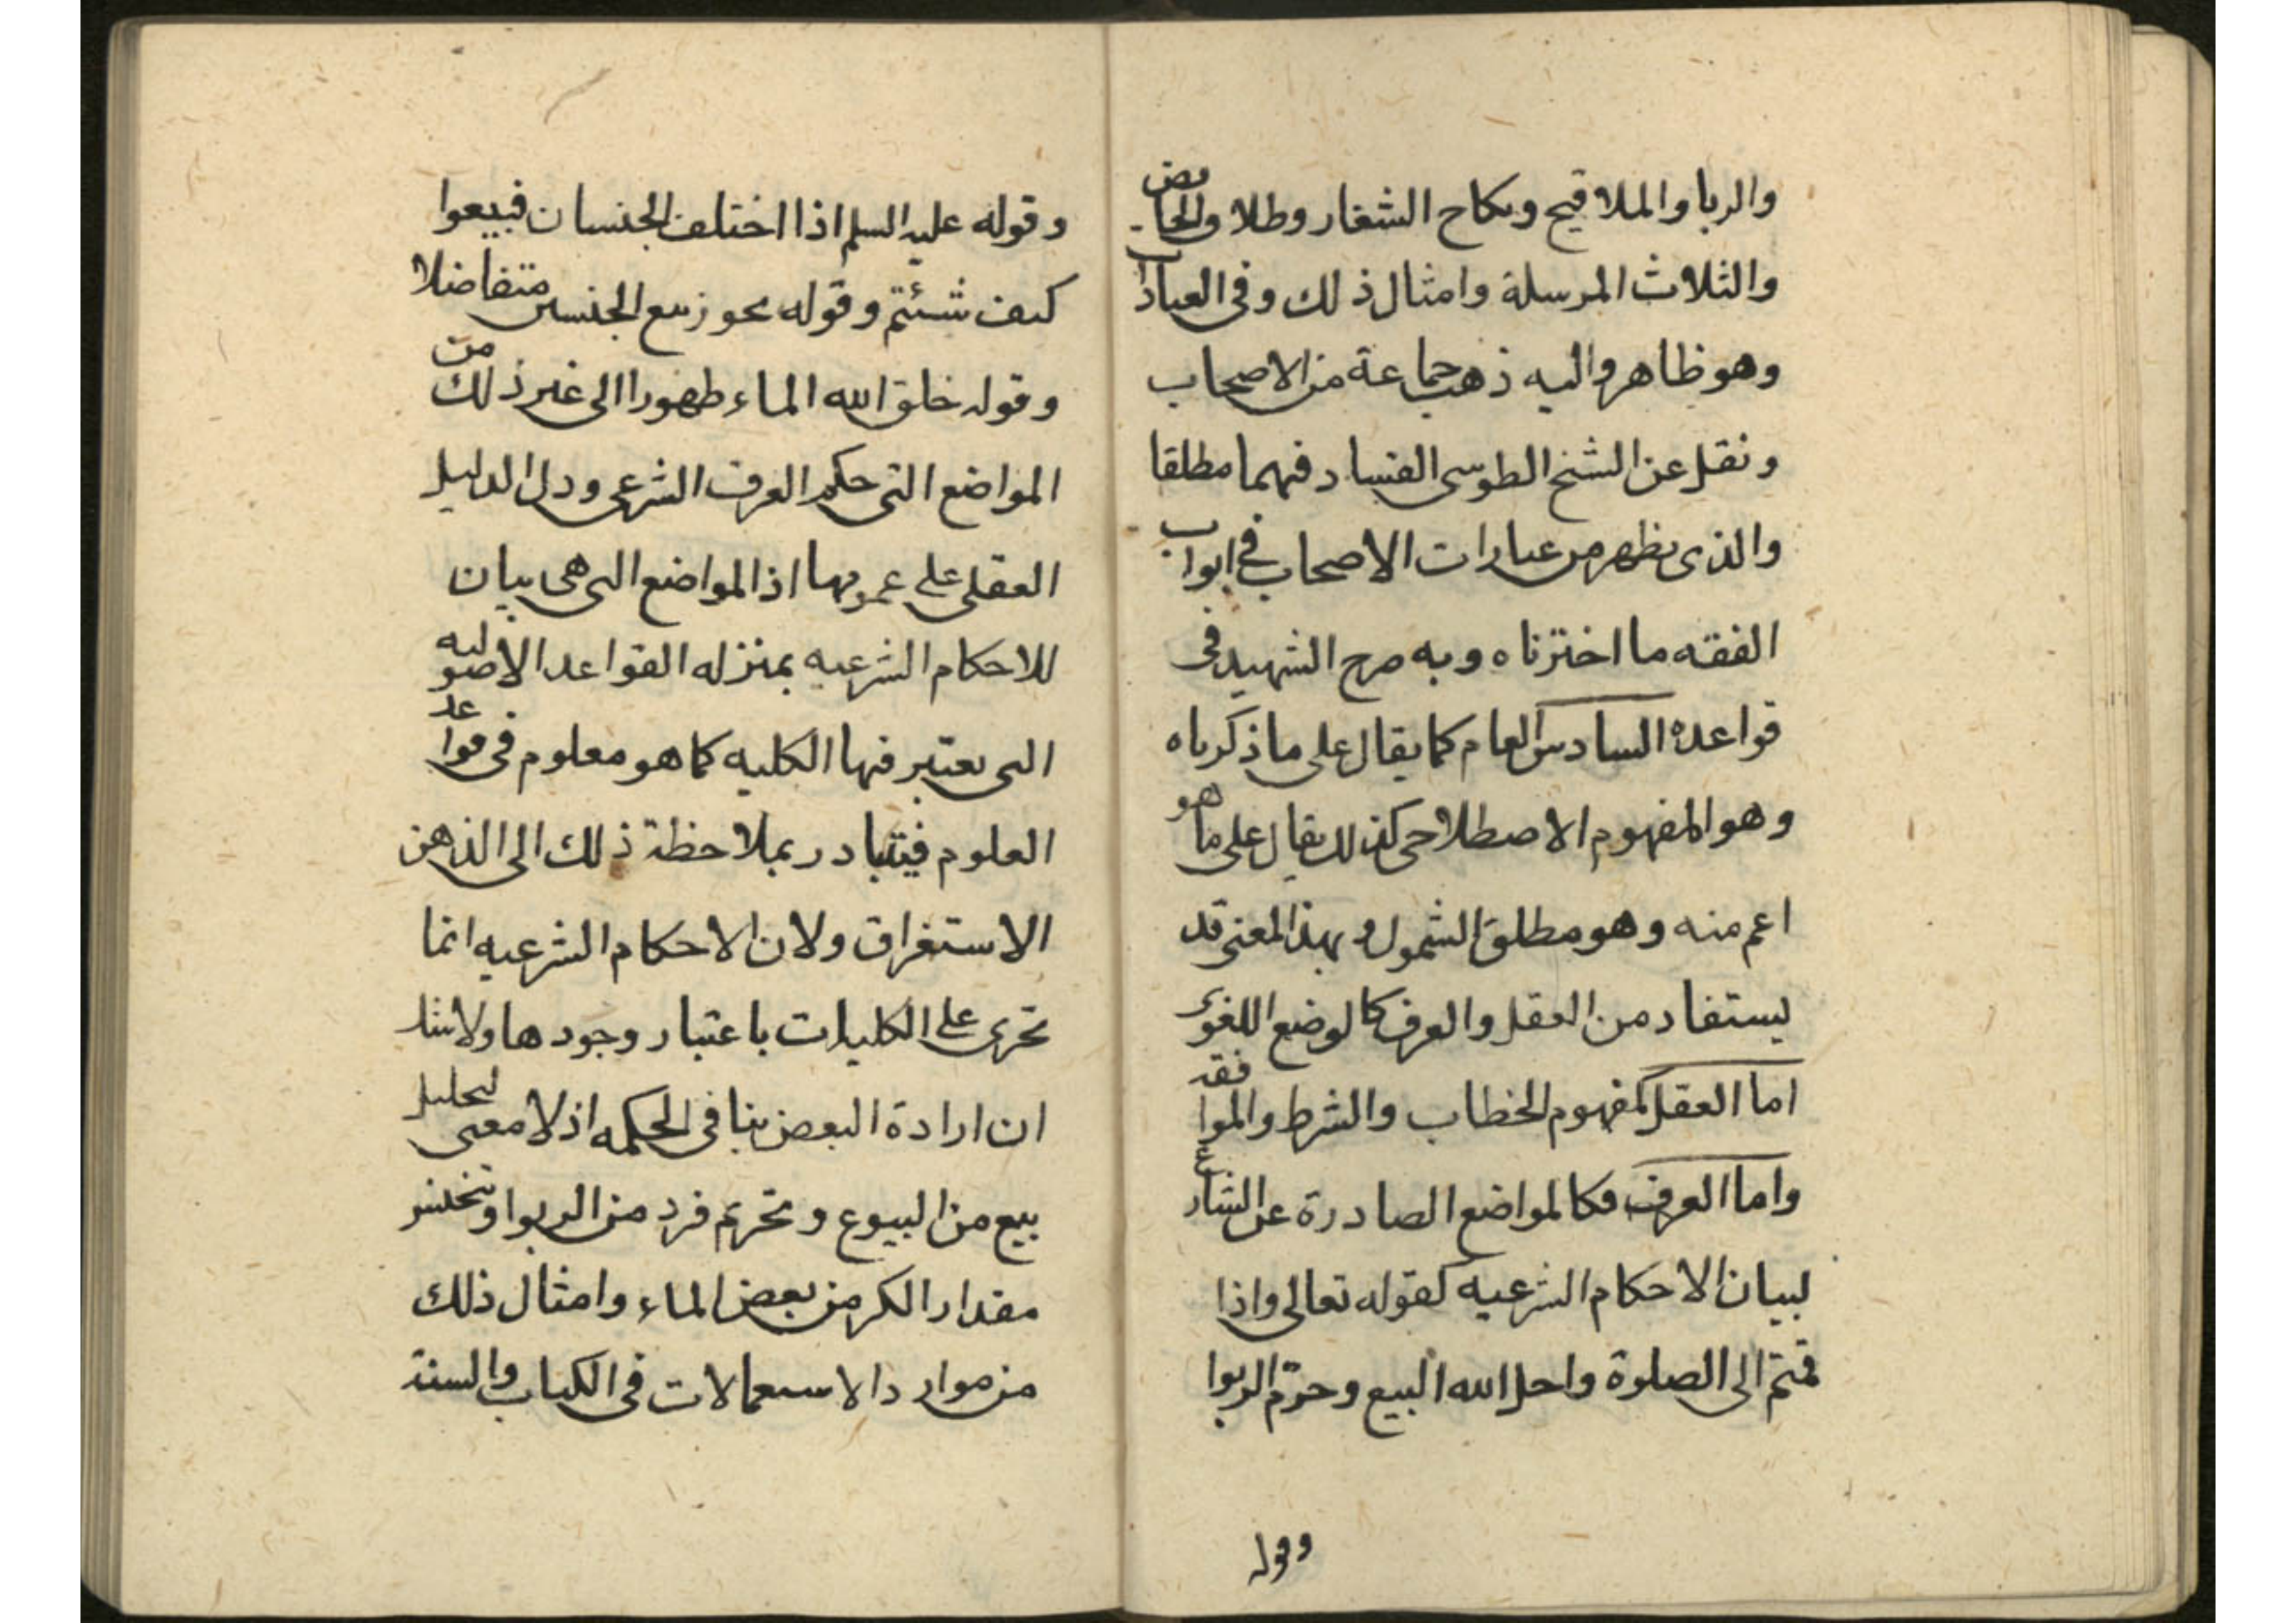 والربا والملاقيح ونكاح الشغار وطلاق الحائض
والثلاث المرسلة وامثال ذلك وفى العبادات
وهو ظاهر واليه ذهب جماعة من الاصحاب
ونقل عن الشيخ الطوسى الفساد فيهما مطلقا
والذى يظهر من عبارات الاصحاب فى ابواب
الفقه ما اخترناه وبه صرح الشهيد فى
قواعده السادس العام كما يقال على ما ذكرناه
وهو المفهوم الاصطلاحى كذلك يقال على ما هو
اعم منه وهو مطلق الشمول وبهذا المعنى قد
يستفاد من العقل والعرف كالوضع اللغوى
اما العقل كمفهوم الخطاب والشرط والموافقة
واما العرف فكالمواضع الصادرة عن الشارع
لبيان الاحكام الشرعيه كقوله تعالى واذا
قمتم الى الصلوة واحل الله البيع وحرّم الربوا
وقوله
وقوله عليه السلم اذا اختلف الجنسان فبيعوا
كيف شئتم وقوله يجوز بيع الجنسين متفاضلا
وقوله خلق الله الماء طهورا الى غير ذلك من
المواضع التى حكم العرف الشرعى ودل الدليل
العقلى على عمومها اذ المواضع التى هى بيان
للاحكام الشرعيه بمنزله القواعد الاصوليه
التى يعتبر فيها الكليه كما هو معلوم فى قواعد
العلوم فيتبادر بملاحظة ذلك الى الذهن
الاستغراق ولان الاحكام الشرعيه انما
تجرى على الكليات باعتبار وجودها ولا شك
ان ارادة البعض ينافى الحكمه اذ لا معنى لتحليل
بيع من البيوع وتحريم فرد من الربوا وتنجيس
مقدار الكر من بعض الماء وامثال ذلك
من موارد الاستعمالات فى الكتاب والسنة